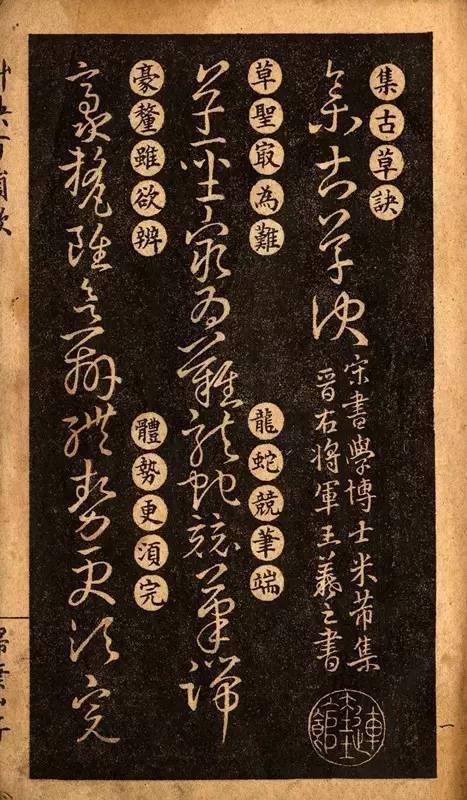 集古草訣
集古草訣
宋書學博士米芾集
晉右將軍王羲之書
草聖㝡為難
龍蛇競筆端
草聖㝡為難龍蛇競筆端
豪釐雖欲辨
體勢更湏完
豪釐雖欲辨體勢更湏完
一